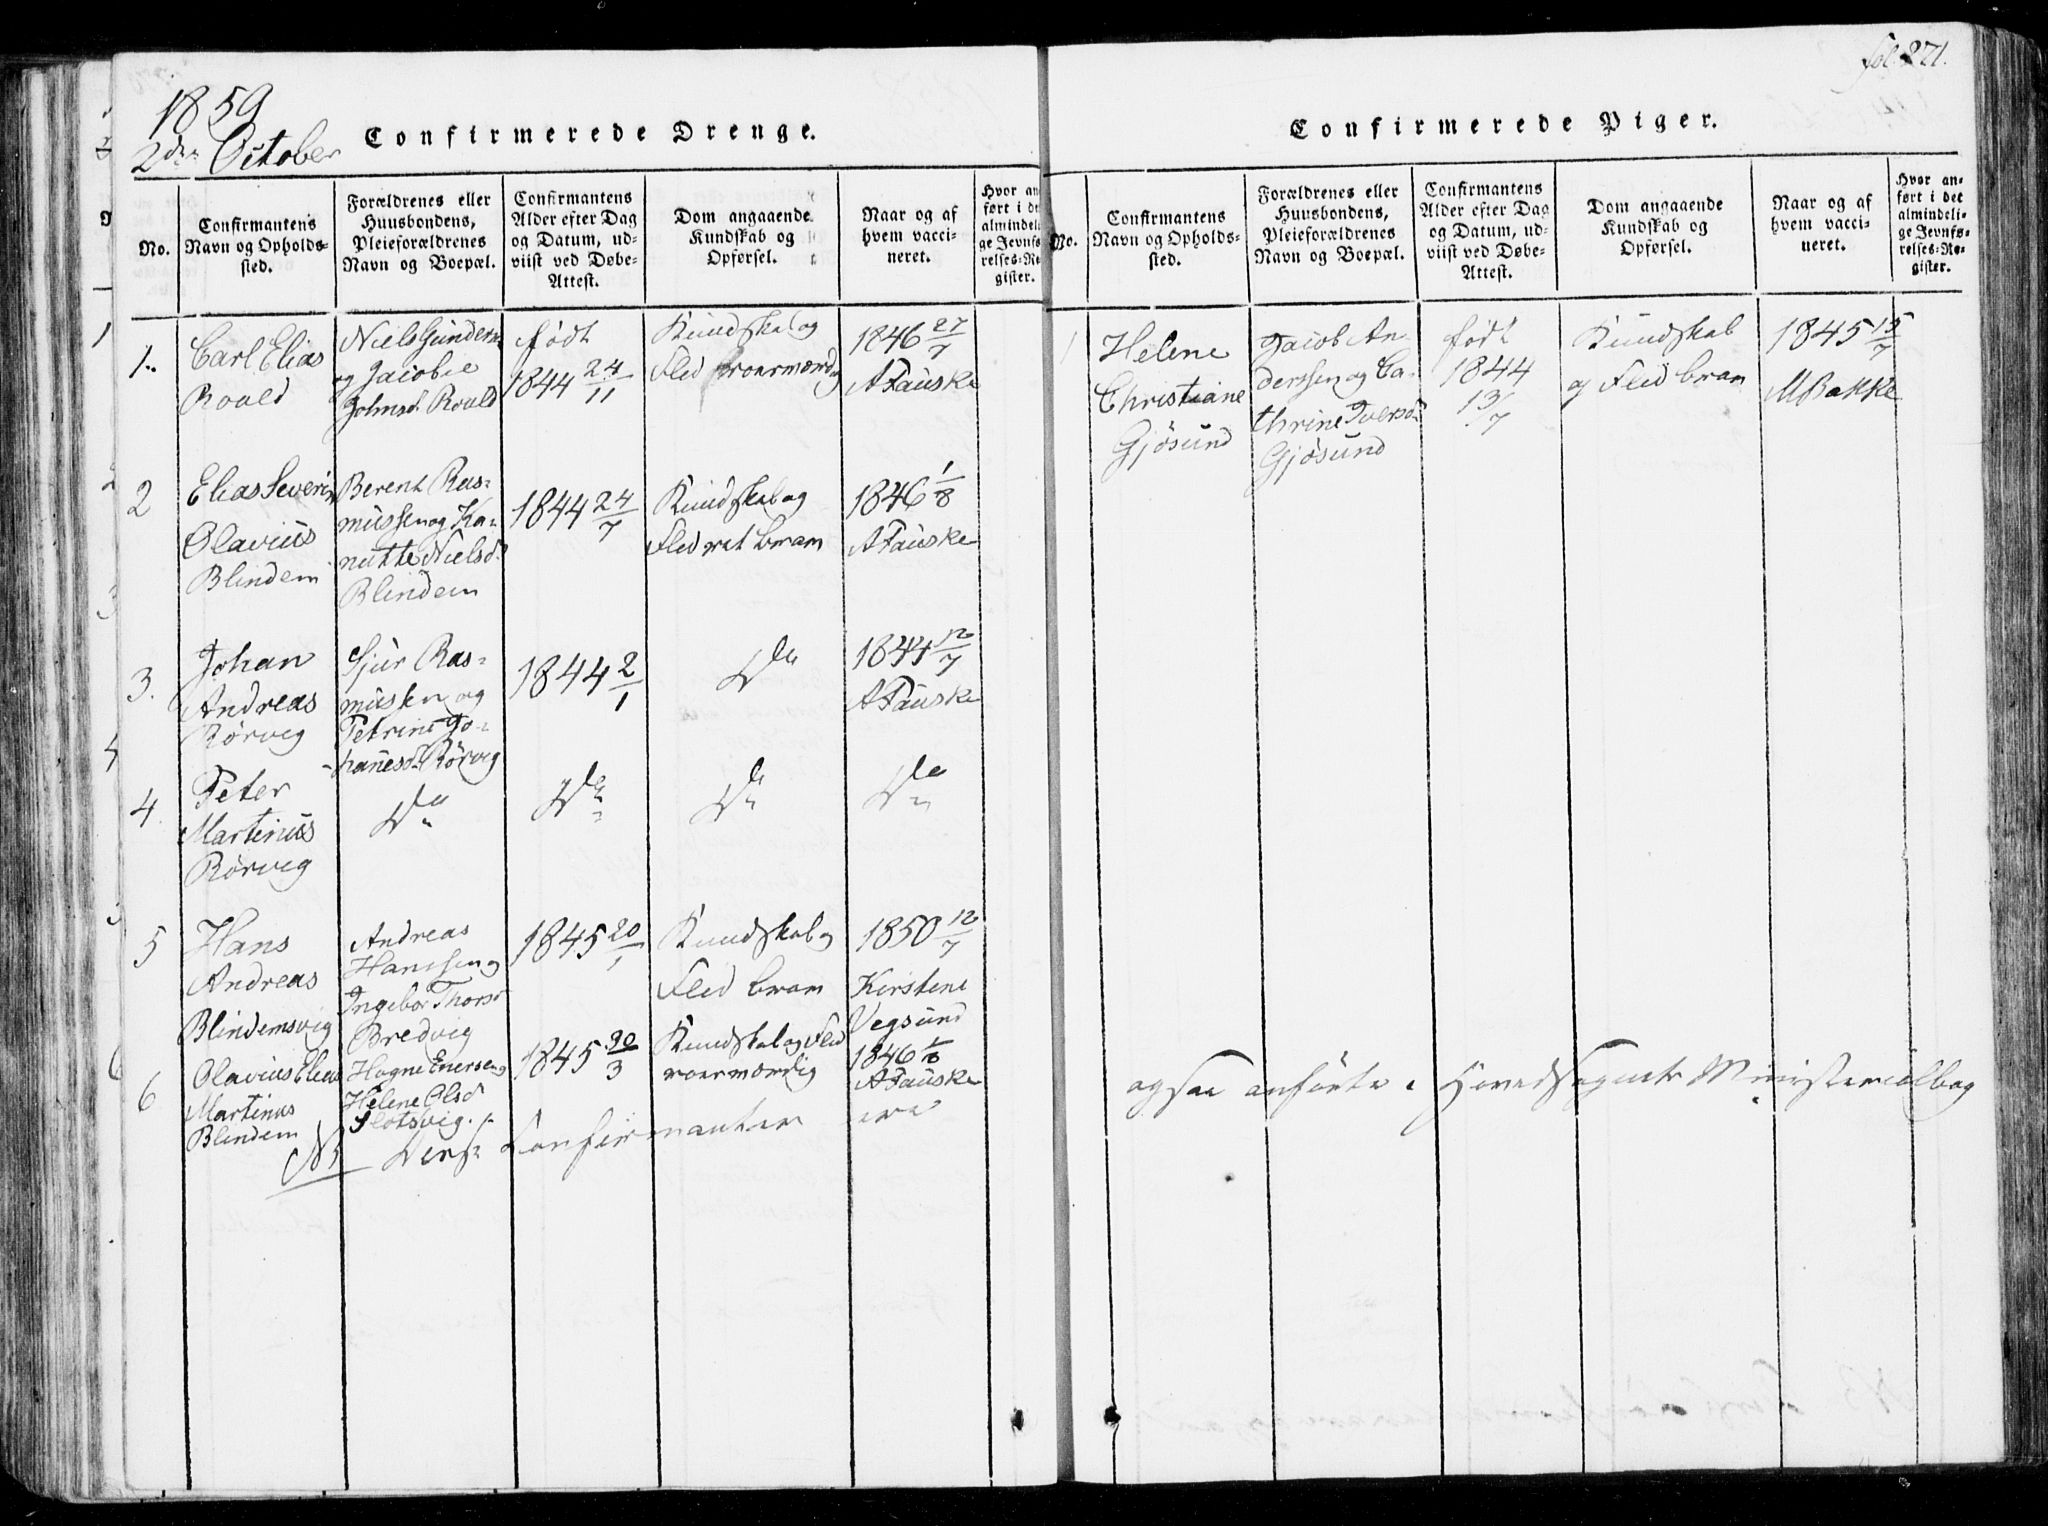 fol. 271.
1859
2den October
Confirmerede Drenge.
No.
Confirmantens
Navn og Opholds-
sted.
Forældrenes eller
Huusbondens,
Pleieforældrenes
Navn og Boepæl.
Confirmantens
Alder efter Dag
og Datum, ud-
viist ved Døbe-
Attest.
Dom angaaende
Kundskab og
Opførsel.
Naar og af
hvem vacci-
neret.
Hvor an
ført i de
almindel
ge Jevnfø
relses-Re
gister.
1.
Carl Elias
Roald
Niels Gunders.
og Jacobie
Johnsd. Roald
født
1844 24/11
Kundskab og
Flid
1846 27/7
A Fauske
2
Elias Severin
Olavius
Blindem
Berent Ras-
mussen og Ka-
nutte Nielsd.
Blindem
1844 24/7
Kundskab og
Flid
1846 1/8
A Fauske
3.
Johan
Andreas
Rørvig
Sjur Ras-
mussen og
Petrine Jo-
hanesd. Rørvig
1844 2/1
Do
1844 12/7
A Fauske
4.
Peter
Martinus
Rørvig
Do
Do
Do
Do
5
Hans
Andreas
Blindemsvig
Andreas
Hanssen og
Ingebor Thorsd
Bredvig
1845 20/1
Kundskab og
Flid
1850 12/7
Kirstene
Vegsund
6
Olavius Elias
Martinus
Blindem
Hogne Enersen og
Helene Olsd
Slotsvig.
1845 30/3
Kundskab og Flid
1846 1/8
A Fauske
NB Disse Confirmanter ere
Confirmerede Piger.
No.
Confirmantens
Navn og Opholds-
sted.
Forældrenes eller
Huusbondens,
Pleieforældrenes
Navn og Boepæl.
Confirmantens
Alder efter Dag
og Datum, ud-
viist ved Døbe-
Attest.
Dom angaaende
Kundskab og
Opførsel.
Naar og af
hvem vacci-
neret.
Hvor an-
ført i det
almindeli-
ge Jevnfø-
relses-Re-
gister.
1
Helene
Christiane
Gjøsund
Jacob An-
derssen og Ca-
thrine Iversd.
Gjøsund
født
1844
13/7
Kundskab
og Flid
1845 15/7
M Bakke
ogsaa anførte i Hovedsognets Ministerialbog